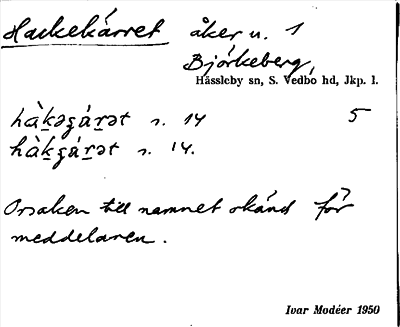 Hackekärret åker u. 1
Björkeberg,
Hässleby sn, S. Vedbo hd, Jkp. l.
hàk̠əʒár̠ət n. 14 5
hàk̠ʒár̠ət n. 14.
Orsaken till namnet okänd för
meddelaren.
Ivar Modéer 1950